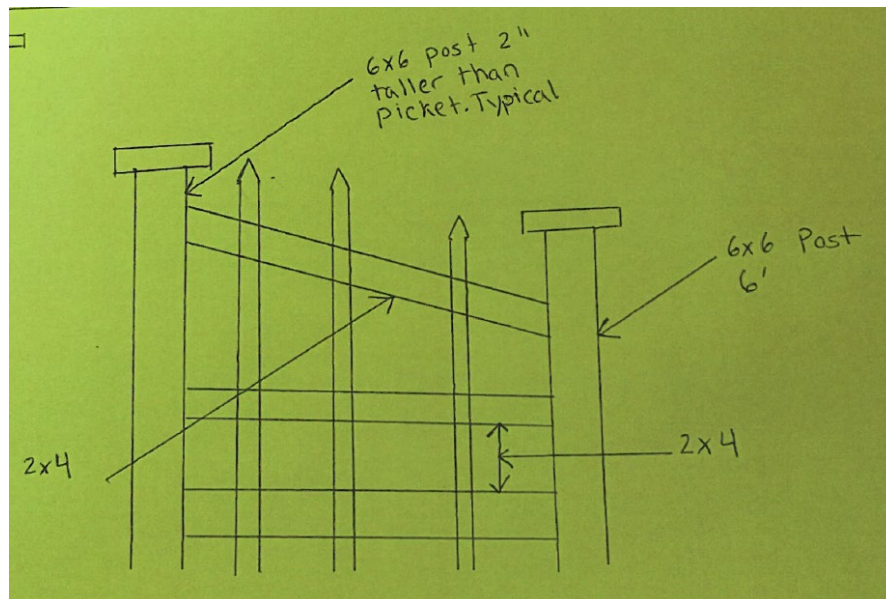 6x6 post 2"
taller than
picket. Typical
6x6 Post
6'
2x4
2x4